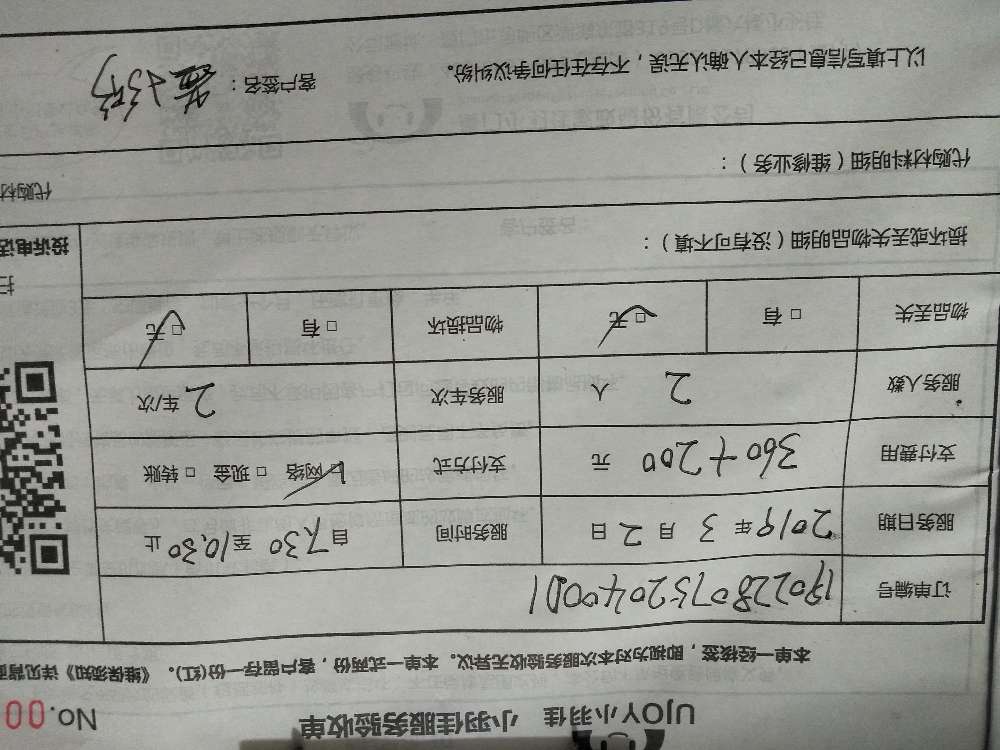 UJOY小羽佳 小羽佳服务验收单 No.00
本单一经核签，即视为对本次服务验收无异议。本单一式两份，客户留存一份(红)。《维保须知》详见背面
订单编号 19022807520400D1
服务日期 2019 年 3 月 2 日 服务时间 自 7.30 至 10.30 止
支付费用 360+200 元 支付方式 □网络 □现金 □转账
服务人数 2 人 服务车次 2 车/次
物品丢失 □有 □无 物品损坏 □有 □无
损坏或丢失物品明细（没有可不填）：
投诉电话
扫
代购材料明细（维修业务）：
代购材
以上填写信息已经本人确认无误，不存在任何争议纠纷。 客户签名：